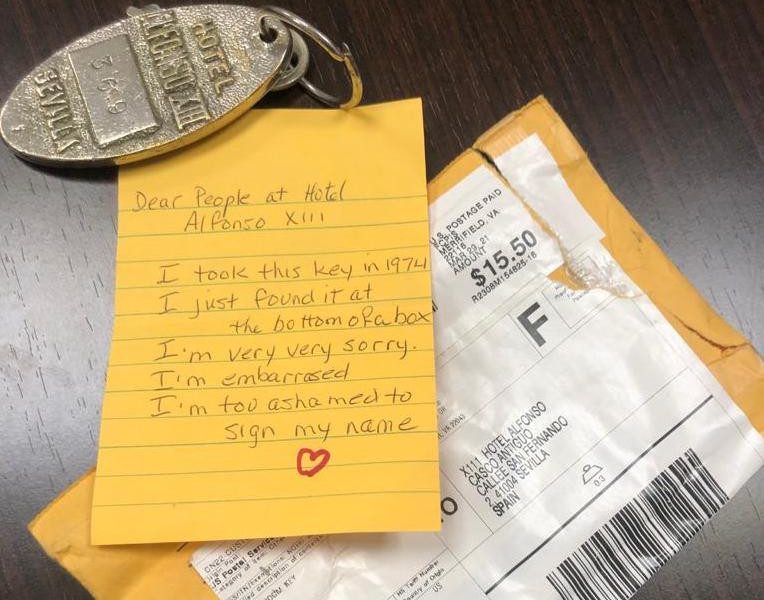 HOTEL
ALFONSO XIII
SEVILLA
Dear People at Hotel
Alfonso XIII
I took this key in 1974
I just found it at
the bottom of a box
I'm very very sorry.
I'm embarrased
I'm too ashamed to
sign my name
U.S. POSTAGE PAID
MERRIFIELD, VA
MAR 29, 21
AMOUNT
$15.50
R2308M154825-16
F
X111 HOTEL ALFONSO
CASCO ANTIGUO
CALLEE SAN FERNANDO
2 41004 SEVILLA
SPAIN
0.3
US Postal Service
HS Tariff Number
Country of Origin
US